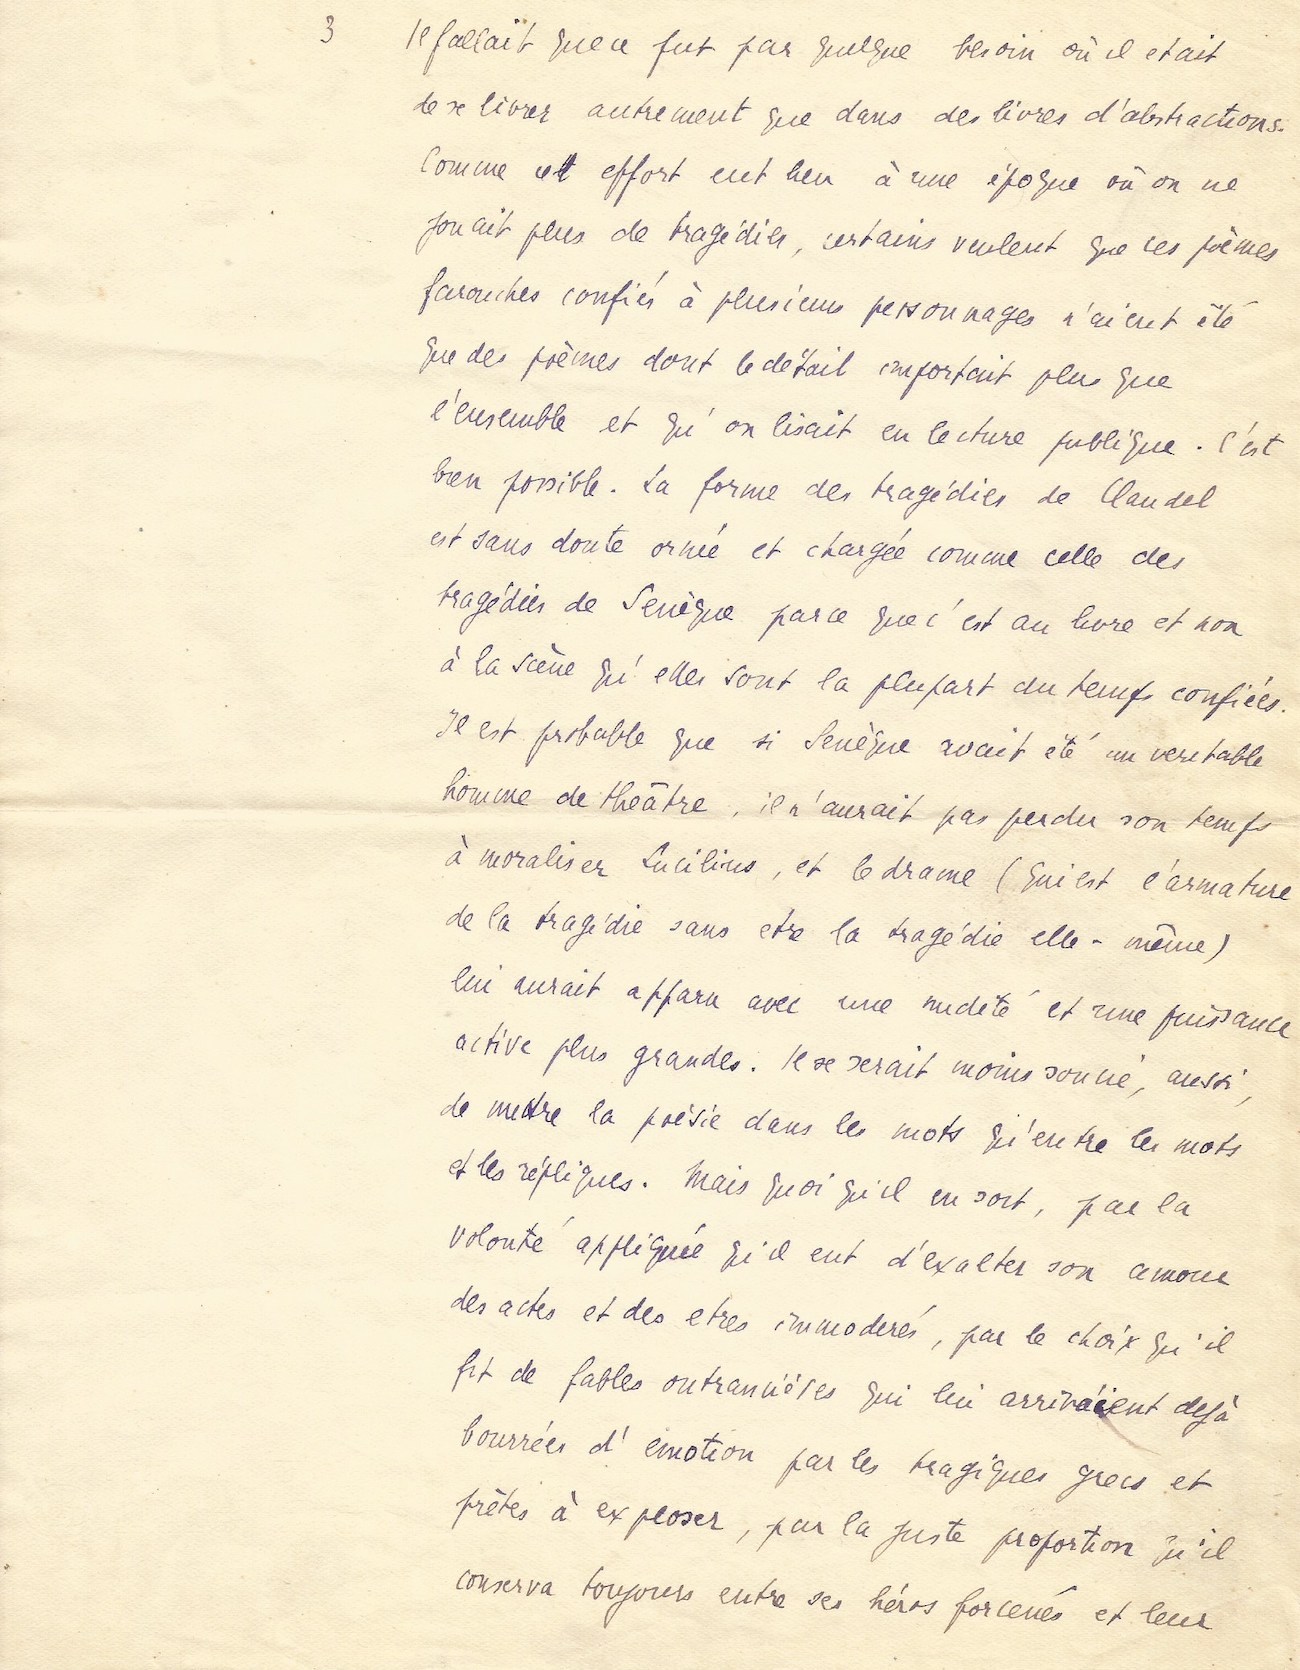 3
Il fallait que ce fut par quelque besoin où il etait
de se livrer autrement que dans des livres d'abstractions.
Comme cet effort eut lieu à une époque où on ne
jouait plus de tragédies, certains veulent que ces poèmes
farouches confiés à plusieurs personnages n'aient été
que des poèmes dont le détail importait plus que
l'ensemble et qu'on lisait en lecture publique. C'est
bien possible. La forme des tragédies de Claudel
est sans doute ornée et chargée comme celle des
tragédies de Senèque parce que c'est au livre et non
à la scène qu'elles sont la plupart du temps confiées.
Il est probable que si Senèque avait été un veritable
homme de théâtre, il n'aurait pas perdu son temps
à moraliser Lucilius, et le drame (qui est l'armature
de la tragédie sans etre la tragédie elle-même)
lui aurait apparu avec une nudité et une puissance
active plus grandes. Il se serait moins soucié, aussi,
de mettre la poésie dans les mots qu'entre les mots
et les répliques. Mais quoi qu'il en soit, par la
volonté appliquée qu'il eut d'exalter son amour
des actes et des etres immoderés, par le choix qu'il
fit de fables outrancières qui lui arrivaient dejà
bourrées d'émotion par les tragiques grecs et
prêtes à exploser, par la juste proportion qu'il
conserva toujours entre ses héros forcenés et leur